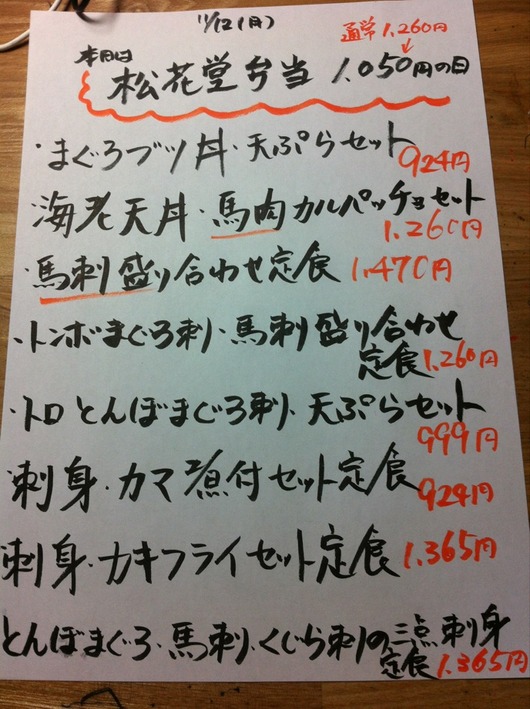 11/12(月)
通常1.260円
↓
本日は
松花堂弁当 1.050円の日
・まぐろブツ丼・天ぷらセット
924円
海老天丼・馬肉カルパッチョセット
1.260円
・馬刺盛り合わせ定食 1.470円
・トンボまぐろ刺・馬刺盛り合わせ
定食 1.260円
・トロとんぼまぐろ刺・天ぷらセット
999円
刺身・カマ煮付セット定食
924円
刺身・カキフライセット定食 1.365円
とんぼまぐろ・馬刺・くじら刺の三点刺身
定食 1.365円